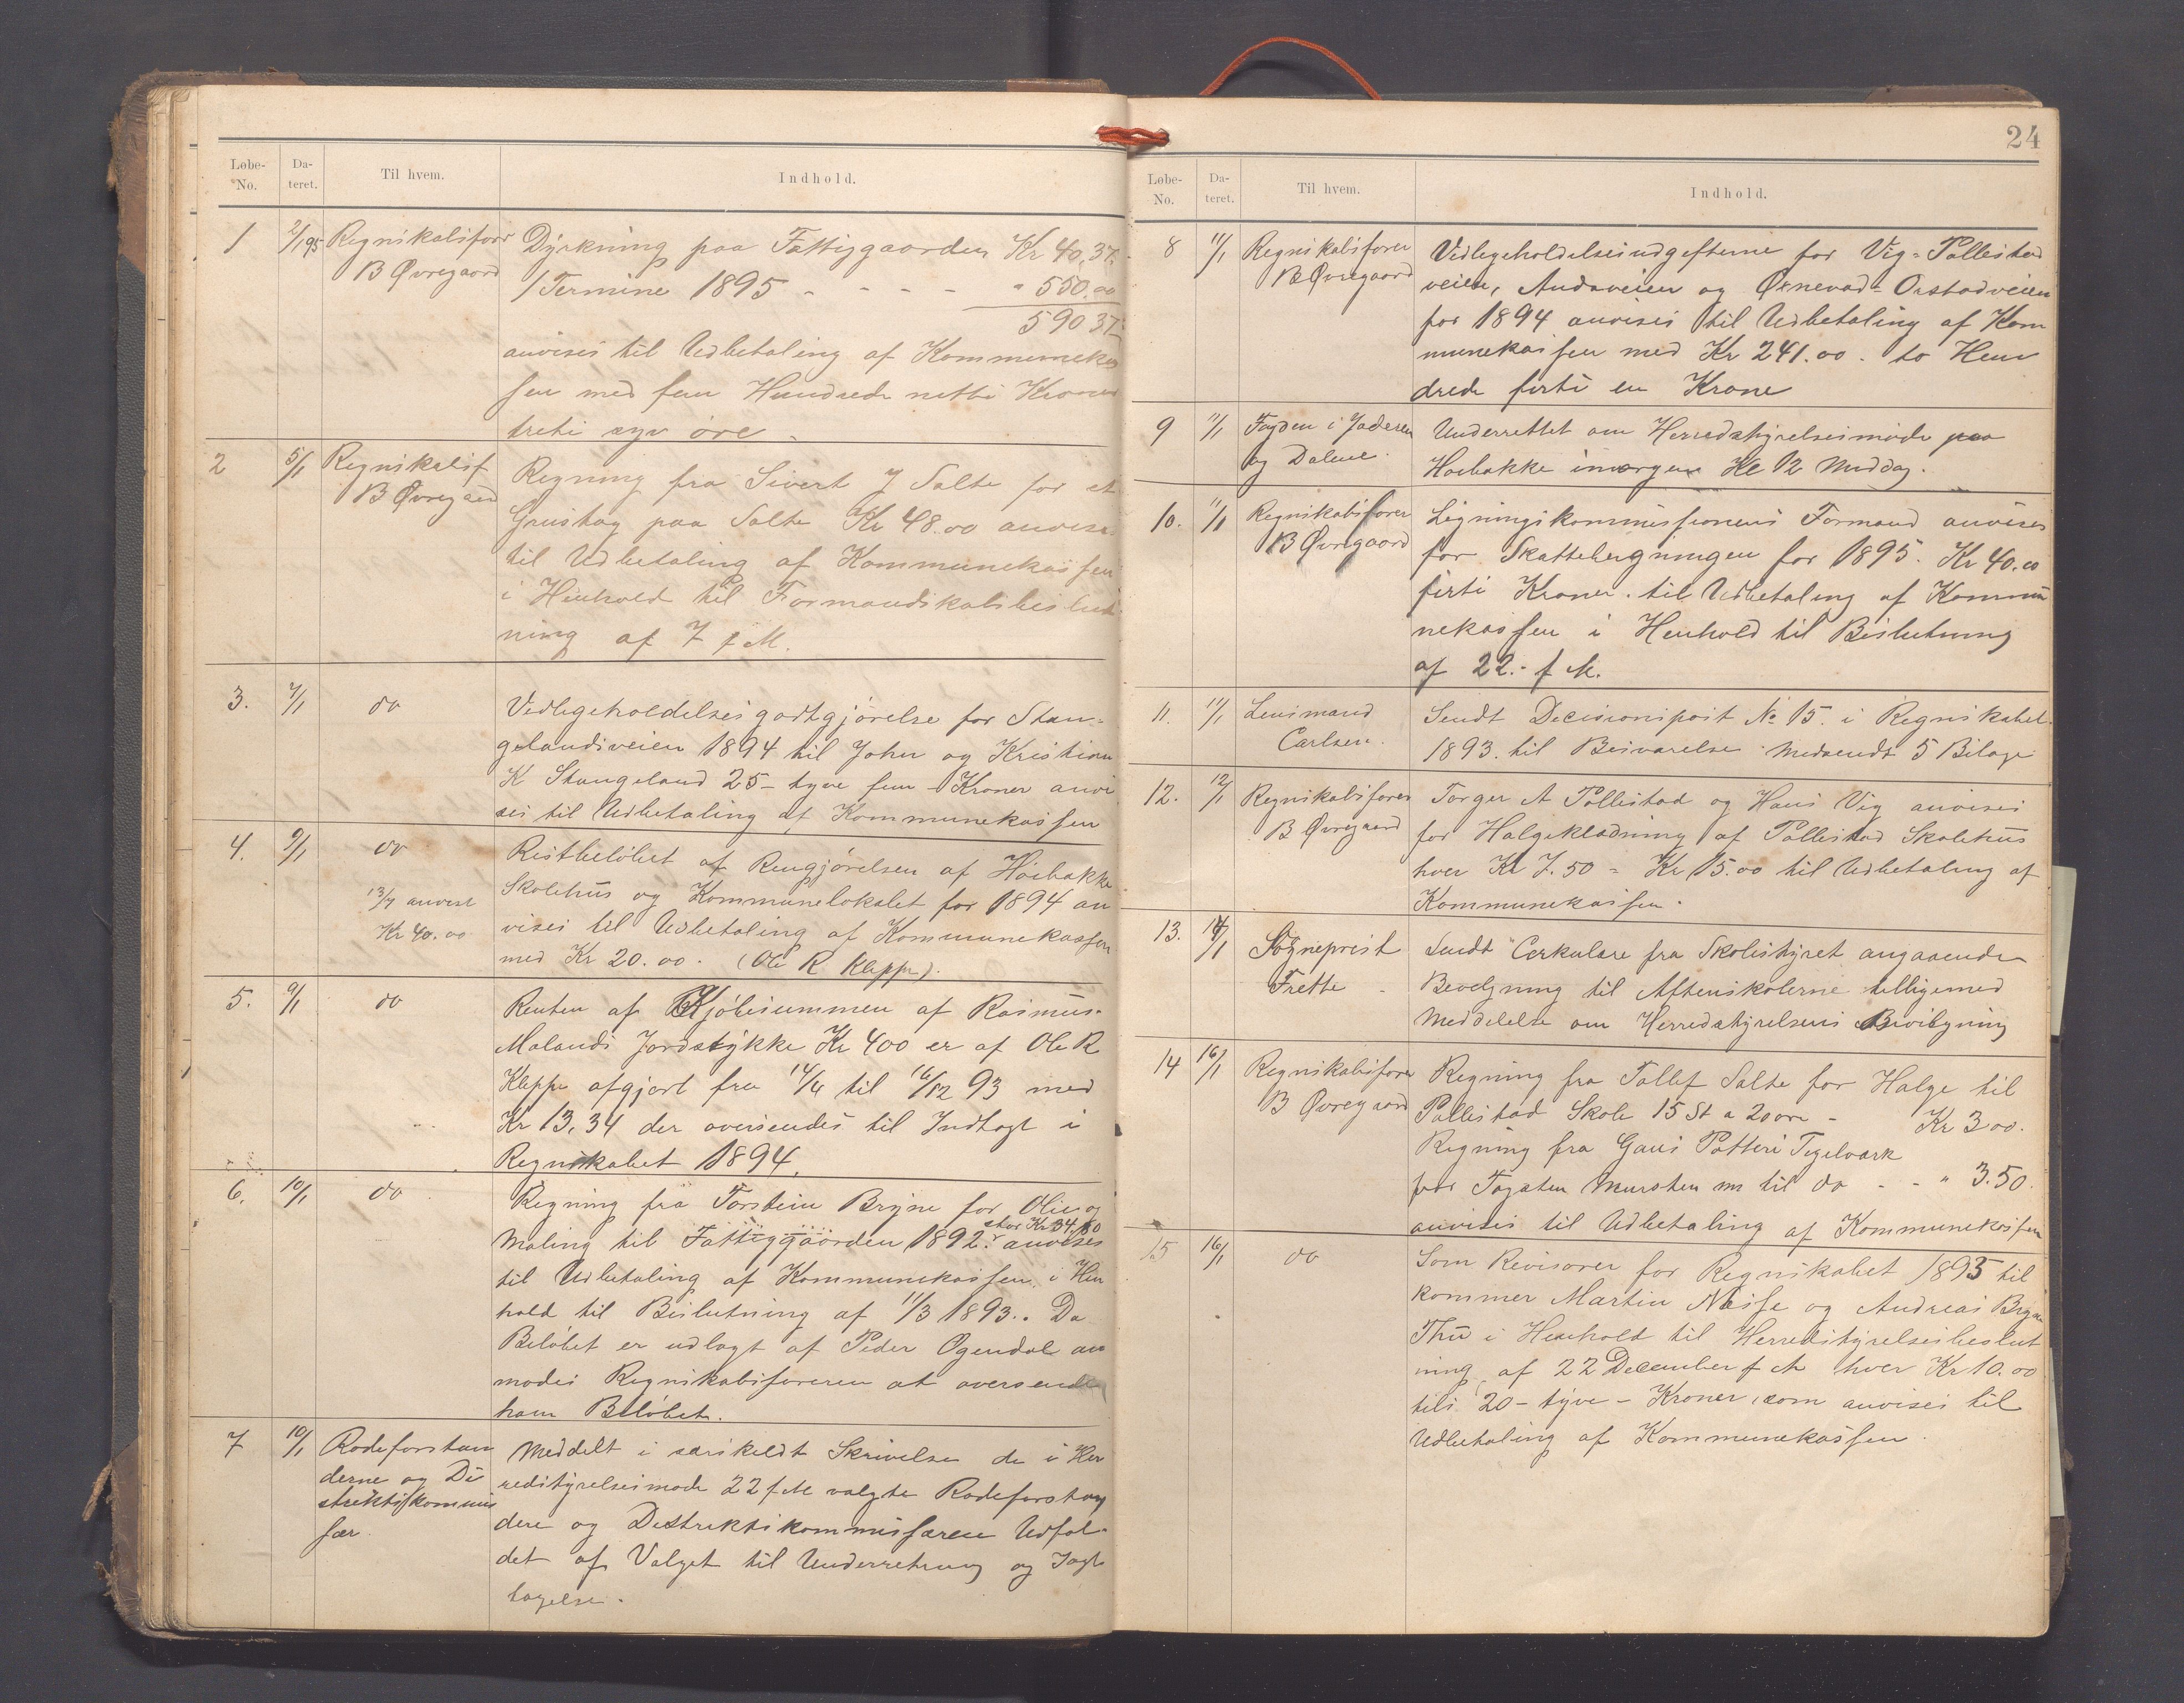 Løbe-No. Da-teret. Til hvem. Indhold.
1 2/1 95 Regnskabsfører Dyrkning paa Fattiggaarden Kr 40,37.
B Øvregaard 1 Termine 1895 - - - - " 550.00
590 37.
anvises til Udbetaling af Kommunekas
sen med fem Hundrede nitti Kroner
treti syv öre.
2 5/1 Regnskabsf Regning fra Sivert J Salte for et
B Øvregaard Grustag paa Salte Kr 48.00 anvises
til Udbetaling af Kommunekassen
i Henhold til Formandskabsbeslut
ning af 7 f. M.
3. 7/1 do Vedligeholdelsesgodtgjörelse for Stan-
gelandsveien 1894 til John og Kristian
K Stangeland 25 - tyve fem - Kroner anvi
ses til Udbetaling af Kommunekassen
4. 9/1 do Restbelöbet af Rengjörelsen af Höibakke
13/7 anvist Skolehus og Kommunelokalet for 1894 an
Kr 40.00 vises til Udbetaling af Kommunekassen
med Kr 20.00. (Ole R Kleppe).
5. 9/1 do Renten af Kjöbesummen af Rasmus
Malands Jordstykke Kr 400 er af Ole R
Kleppe afgjort fra 14/6 til 16/12 93 med
Kr 13,34 der oversendes til Indtagt i
Regnskabet 1894.
6. 10/1 do Regning fra Torstein Bryne for Olie og
Maling til Fattiggaarden 1892. stor Kr 34.80 anvises
til Udbetaling af Kommunekassen i Hen
hold til Beslutning af 11/3 1893. Da
Belöbet er udlagt af Peder Ogendal an
modes Regnskabsföreren at oversende
ham Belöbet.
7 10/1 Rodeforstan Meddelt i særskildt Skrivelse de i Her
derne og Di redstyrelsesmöde 22 f. M valgte Rodeforstan
striktskommis dere og Distriktskommissæren Udfal-
sær. det af Valget til Underretning og Iagt
tagelse.
24
Løbe-No. Da-teret. Til hvem. Indhold.
8 11/1 Regnskabsfører Vedligeholdelsesudgifterne for Vig-Pollestad
B Øvregaard veien, Audaveien og Ørnevad-Orstadveien
for 1894 anvises til Udbetaling af Kom
munekassen med Kr 241.00. to Hun
drede firti en Krone
9 11/1 Fogden i Jæderen Underrettet om Herredstyrelsesmöde paa
og Dalene. Höibakke imorgen Kl 12 Middag.
10. 11/1 Regnskabsfører Ligningskommissionens Formand anvises
B Øvregaard for Skatteberegningen for 1895. Kr 40.00
firti Kroner. til Udbetaling af Kommu
nekassen i Henhold til Beslutning
af 22. f. M.
11. 11/1 Lensmand Sendt Decisionspost No 15. i Regnskabet
Carlsen. 1893. til Besvarelse. Medsendt 5 Bilage
12. 12/1 Regnskabsfører Torger A Pollestad og Hans Vig anvises
B Øvregaard for Halgeklædning af Pollestad Skolehus
hver Kr 7.50 = Kr 15.00 til Udbetaling af
Kommunekassen.
13. 14/1 Sogneprest Sendt Cirkulære fra Skolestyret angaaende
Frette Bevilgning til Aftenskolerne tilligemed
Meddelelse om Herredstyrelsens Bevilgning
14 16/1 Regnskabsfører Regning fra Tollef Salte for Halge til
B Øvregaard Pollestad Skole 15 St a 20 öre - Kr 3 00.
Regning fra Gans Potteri Tegelværk
for Tagsten Mursten m til do - - " 3.50.
anvises til Udbetaling af Kommunekassen
15 16/1 do Som Revisorer for Regnskabet 1893 til
kommer Martin Næsse og Andreas Bryne
Thu i Henhold til Herredstyrelsesbeslut
ning af 22 December f. A hver Kr 10.00
tils. 20 - tyve - Kroner, som anvises til
Udbetaling af Kommunekassen.